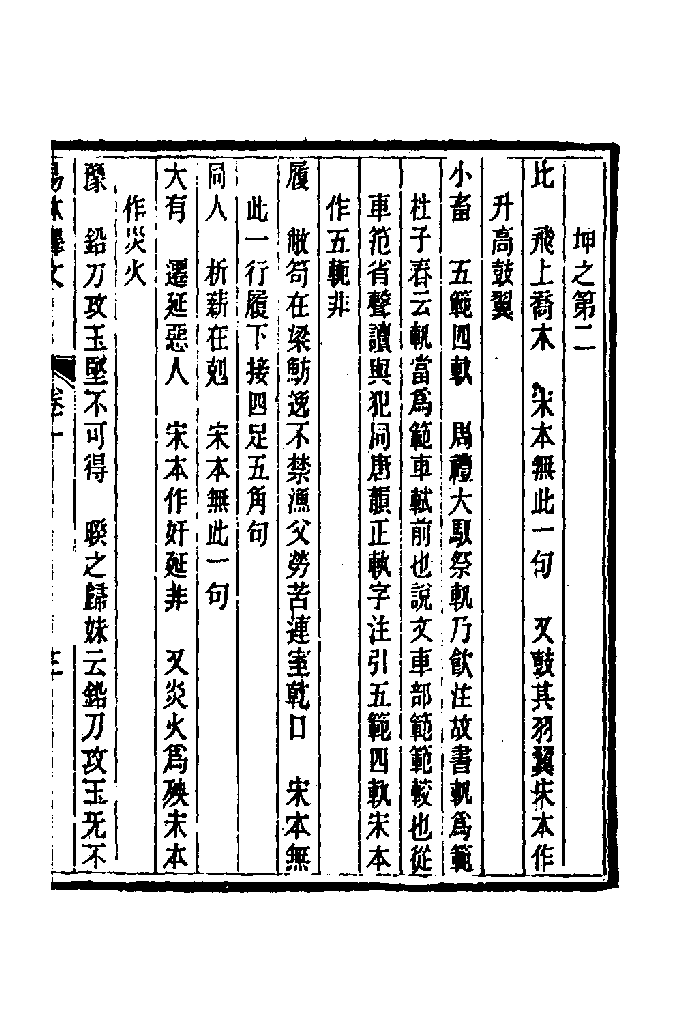 坤之第二
比　飛上喬木　宋本無此一句　又鼓其羽翼宋本作
升高鼓翼
小畜　五範四軌　周禮大馭祭軌乃飲注故書軌為範
杜子春云軌當爲範車軾前也說文車部範範軷也從
車笵省聲讀與犯同唐韻正執字注引五範四軌宋本
作五軛非
履　敝笱在梁魴逸不禁漁父勞苦連室乾口　宋本無
此一行履下接四足五角句
同人　析薪在𠜍　宋本無此一句
大有　遷延惡人　宋本作奸延非　又炎火爲殃宋本
作災火
豫　鉛刀攻玉堅不可得　睽之歸妹云鉛刀攻玉旡不
易林釋文　卷一　三